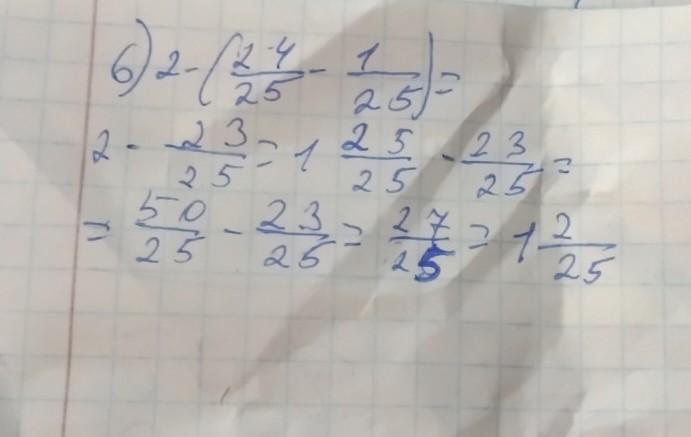 6) 2 - (24/25 - 1/25) =
2 - 23/25 = 1 25/25 - 23/25 =
= 50/25 - 23/25 = 27/25 = 1 2/25